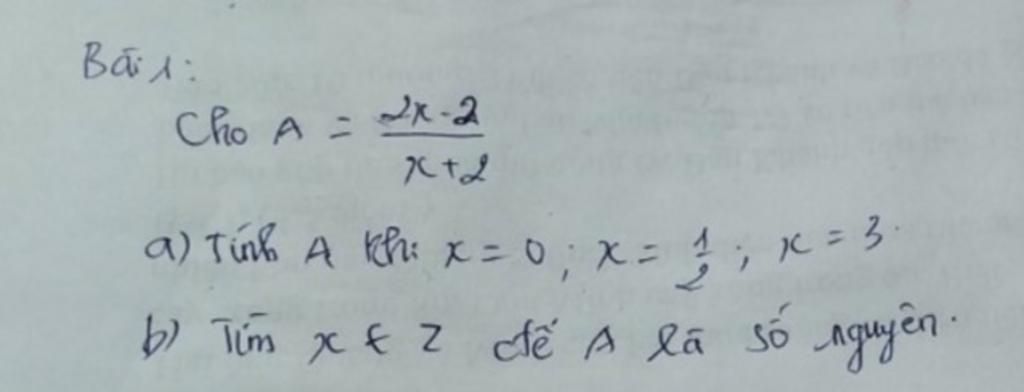 Bài 1:
Cho A = \frac{2x-2}{x+2}
a) Tính A khi x = 0; x = \frac{1}{2}; x = 3.
b) Tìm x ∈ Z để A là số nguyên.